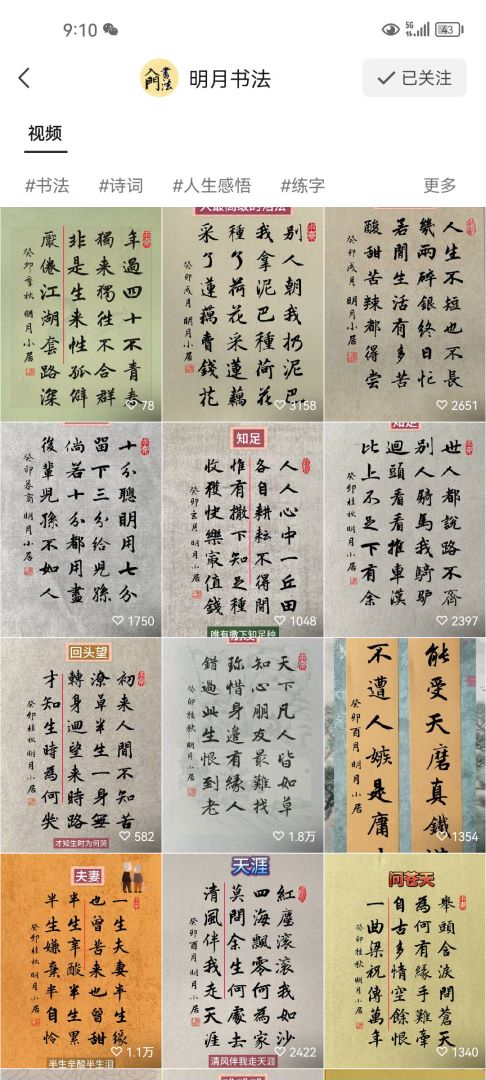 9:10
5G
43
入門
書法
明月书法
已关注
视频
#书法
#诗词
#人生感悟
#练字
更多
年過四十不青春
獨来獨往不合群
非是生来性孤僻
厭倦江湖套路深
癸卯季秋 明月小居
78
人最高级的活法
别人朝我扔泥巴
我拿泥巴種荷花
種了荷花采蓮藕
采了蓮藕賣錢花
癸卯戌月 明月小居
3158
人生不短也不長
幾两碎銀終日忙
若閒生活有多苦
酸甜苦辣都得尝
癸卯戌月 明月小居
2651
十分聰明用七分
留下三分给兒孫
倘若十分都用盡
後輩兒孫不如人
癸卯暮商 明月小居
1750
知足
人人心中一丘田
各自耕耘不得閒
惟有撒下知足種
收穫快樂最值錢
癸卯玄月 明月小居
1048
唯有撒下知足种
知足
世人都說路不齊
别人騎馬我騎驴
迴頭看看推車漢
比上不足下有余
癸卯桂秋 明月小居
2397
回头望
初来人間不知苦
潦草半生一身無
轉身迴望来時路
才知生時為何哭
癸卯桂秋 明月小居
582
才知生时为何哭
天下凡人皆如草
知心朋友最難找
珎惜身邊有緣人
錯過此生恨到老
癸卯桂秋 明月小居
1.8万
能受天磨真鐵
不遭人嫉是庸
癸卯酉月 明月小居
1354
夫妻
一生夫妻半生緣
也曾苦来也曾甜
半生辛酸半生累
半生嫌棄半自怜
癸卯桂秋 明月小居
1.1万
半生辛酸半生泪
天涯
紅塵滚滚我如沙
四海飄零何為家
莫問余生何處去
清風伴我走天涯
癸卯酉月 明月小居
2422
清风伴我走天涯
问苍天
舉頭含淚問蒼天
為何有緣手難牽
自古多情空餘恨
一曲梁祝傳萬年
癸卯桂秋 明月小居
1340